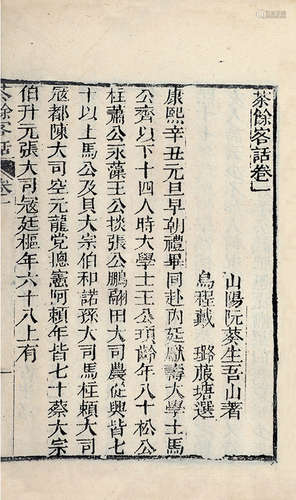 茶餘客話卷一
山陽阮葵生吾山著
烏程戴璐菔塘選
康熙辛丑元旦早朝禮畢同赴內廷獻壽大學士馬
公齊以下十四人時大學士王公頊齡年八十松公
柱蕭公永藻王公掞張公鵬翮田大司農從典皆七
十以上馬公及貝大宗伯和諾孫大司馬柱賴大司
寇都陳大司空元龍党總憲阿賴年皆七十蔡大宗
伯升元張大司寇廷樞年六十八上有
茶餘客話 卷一